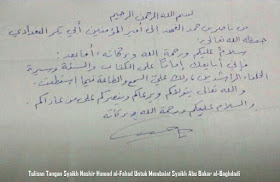 بسم الله الرحمن الرحيم
من ناصر بن حمد الفهد إلى أمير المؤمنين أبي بكر البغدادي
حفظه الله تعالى:
سلام عليكم ورحمة الله وبركاته، أما بعد:
فإني أبايعك إماماً على الكتاب والسنة وسيرة
الخلفاء الراشدين، ولك علي السمع والطاعة فيما استطعت،
والله تعالى يتولاكم ويرعاكم وينصركم على من عاداكم.
والسلام عليكم ورحمة الله وبركاته
Tulisan Tangan Syaikh Nashir Hamad al-Fahad Untuk Membaiat Syaikh Abu Bakar al-Baghdadi